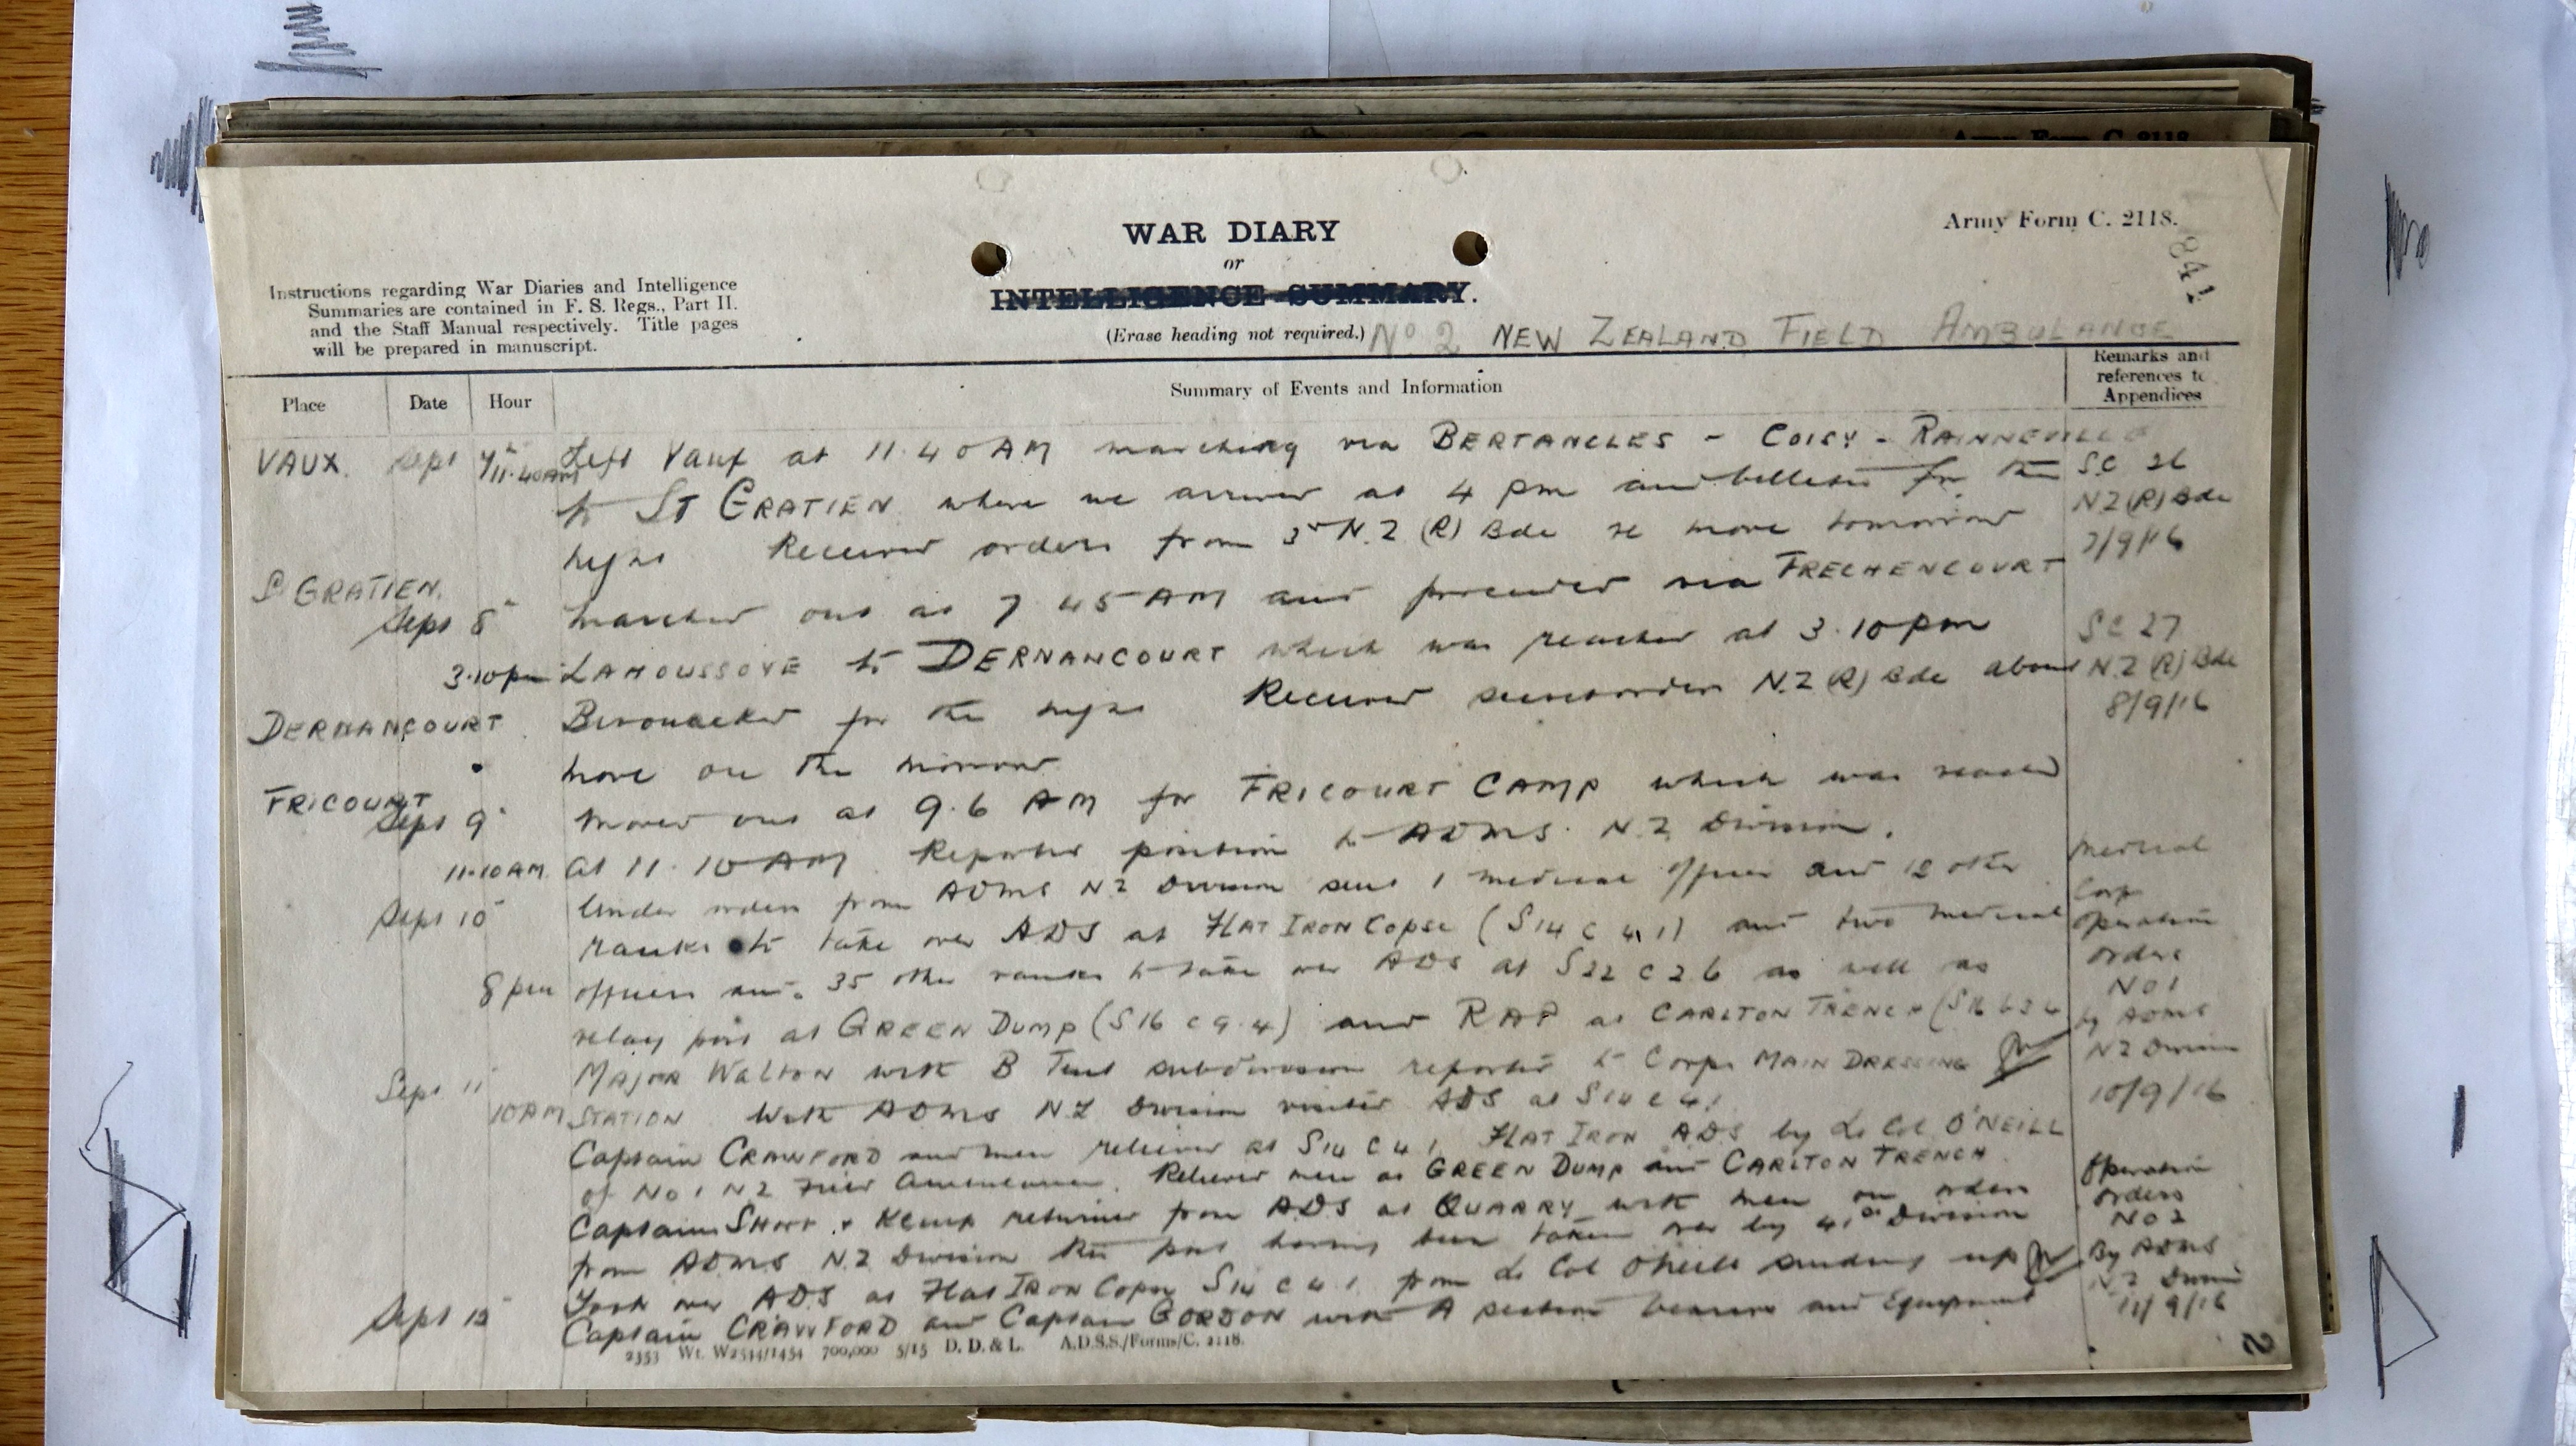 Army Form C. 2118.
WAR DIARY
or
INTELLIGENCE SUMMARY.
(Erase heading not required.) No 2 NEW ZEALAND FIELD AMBULANCE
Army Form C. 2118.
841
Instructions regarding War Diaries and Intelligence
Summaries are contained in F. S. Regs., Part II.
and the Staff Manual respectively. Title pages
will be prepared in manuscript.
Place Date Hour Summary of Events and Information Remarks and references to Appendices
VAUX. Sept 7th 11.40AM Left Vaux at 11.40 AM marching via BERTANCLES - COISY - RAINNEVILLE
to ST GRATIEN where we arrived at 4 pm and billeted for the SC 26
night Received orders from 3rd N.Z (R) Bde re move tomorrow NZ (R) Bde 7/9/16
St GRATIEN.
Sept 8th Marched out at 7.45 AM and proceeded via FRECHENCOURT
3.10pm LAHOUSSOYE to DERNANCOURT which was reached at 3.10 pm SC 27
DERNANCOURT Bivouacked for the night Received orders N.Z (R) Bde about N.Z (R) Bde
move on the morrow 8/9/16
FRICOURT
Sept 9th Moved out at 9.6 AM for FRICOURT CAMP which was reached
11.10AM. at 11.10 AM. Reported position to ADMS. N.Z Division.
Sept 10th Under orders from ADMS NZ Division sent 1 medical officer and 12 other Medical
ranks to take over ADS at FLAT IRON COPSE (S14 C 4,1) and two medical Corp operation
8 pm officers and 35 other ranks to take over ADS at S22 C 2 6 as well as orders
relay post at GREEN DUMP (S16 C 9.4) and RAP at CARLTON TRENCH (S16 No 1 by ADMS
Sept 11th MAJOR WALTON with B Tent subdivision reported to Corps MAIN DRESSING NZ Division
10AM STATION With ADMS NZ Division visited ADS at S14 C 4.1 10/9/16
Captain CRAWFORD and men relieved at S14 C 4 1 FLAT IRON ADS by Lt Col O'NEILL
of No 1 NZ Field Ambulance. Relieved men at GREEN DUMP and CARLTON TRENCH. Operation
Captains SHORT & KEMP returned from ADS at QUARRY with men on orders orders
from ADMS N.Z Division this post having been taken over by 41st Division No 2
Took over ADS at FLAT IRON Copse S14 C 4.1 from Lt Col O'Neill sending up By ADMS NZ Division
Sept 12th Captain CRAWFORD and Captain GORDON with A section bearers and Equipment 11/9/16
2353 Wt. W2514/1454 700,000 5/15 D. D. & L. A.D.S.S./Forms/C. 2118.
2